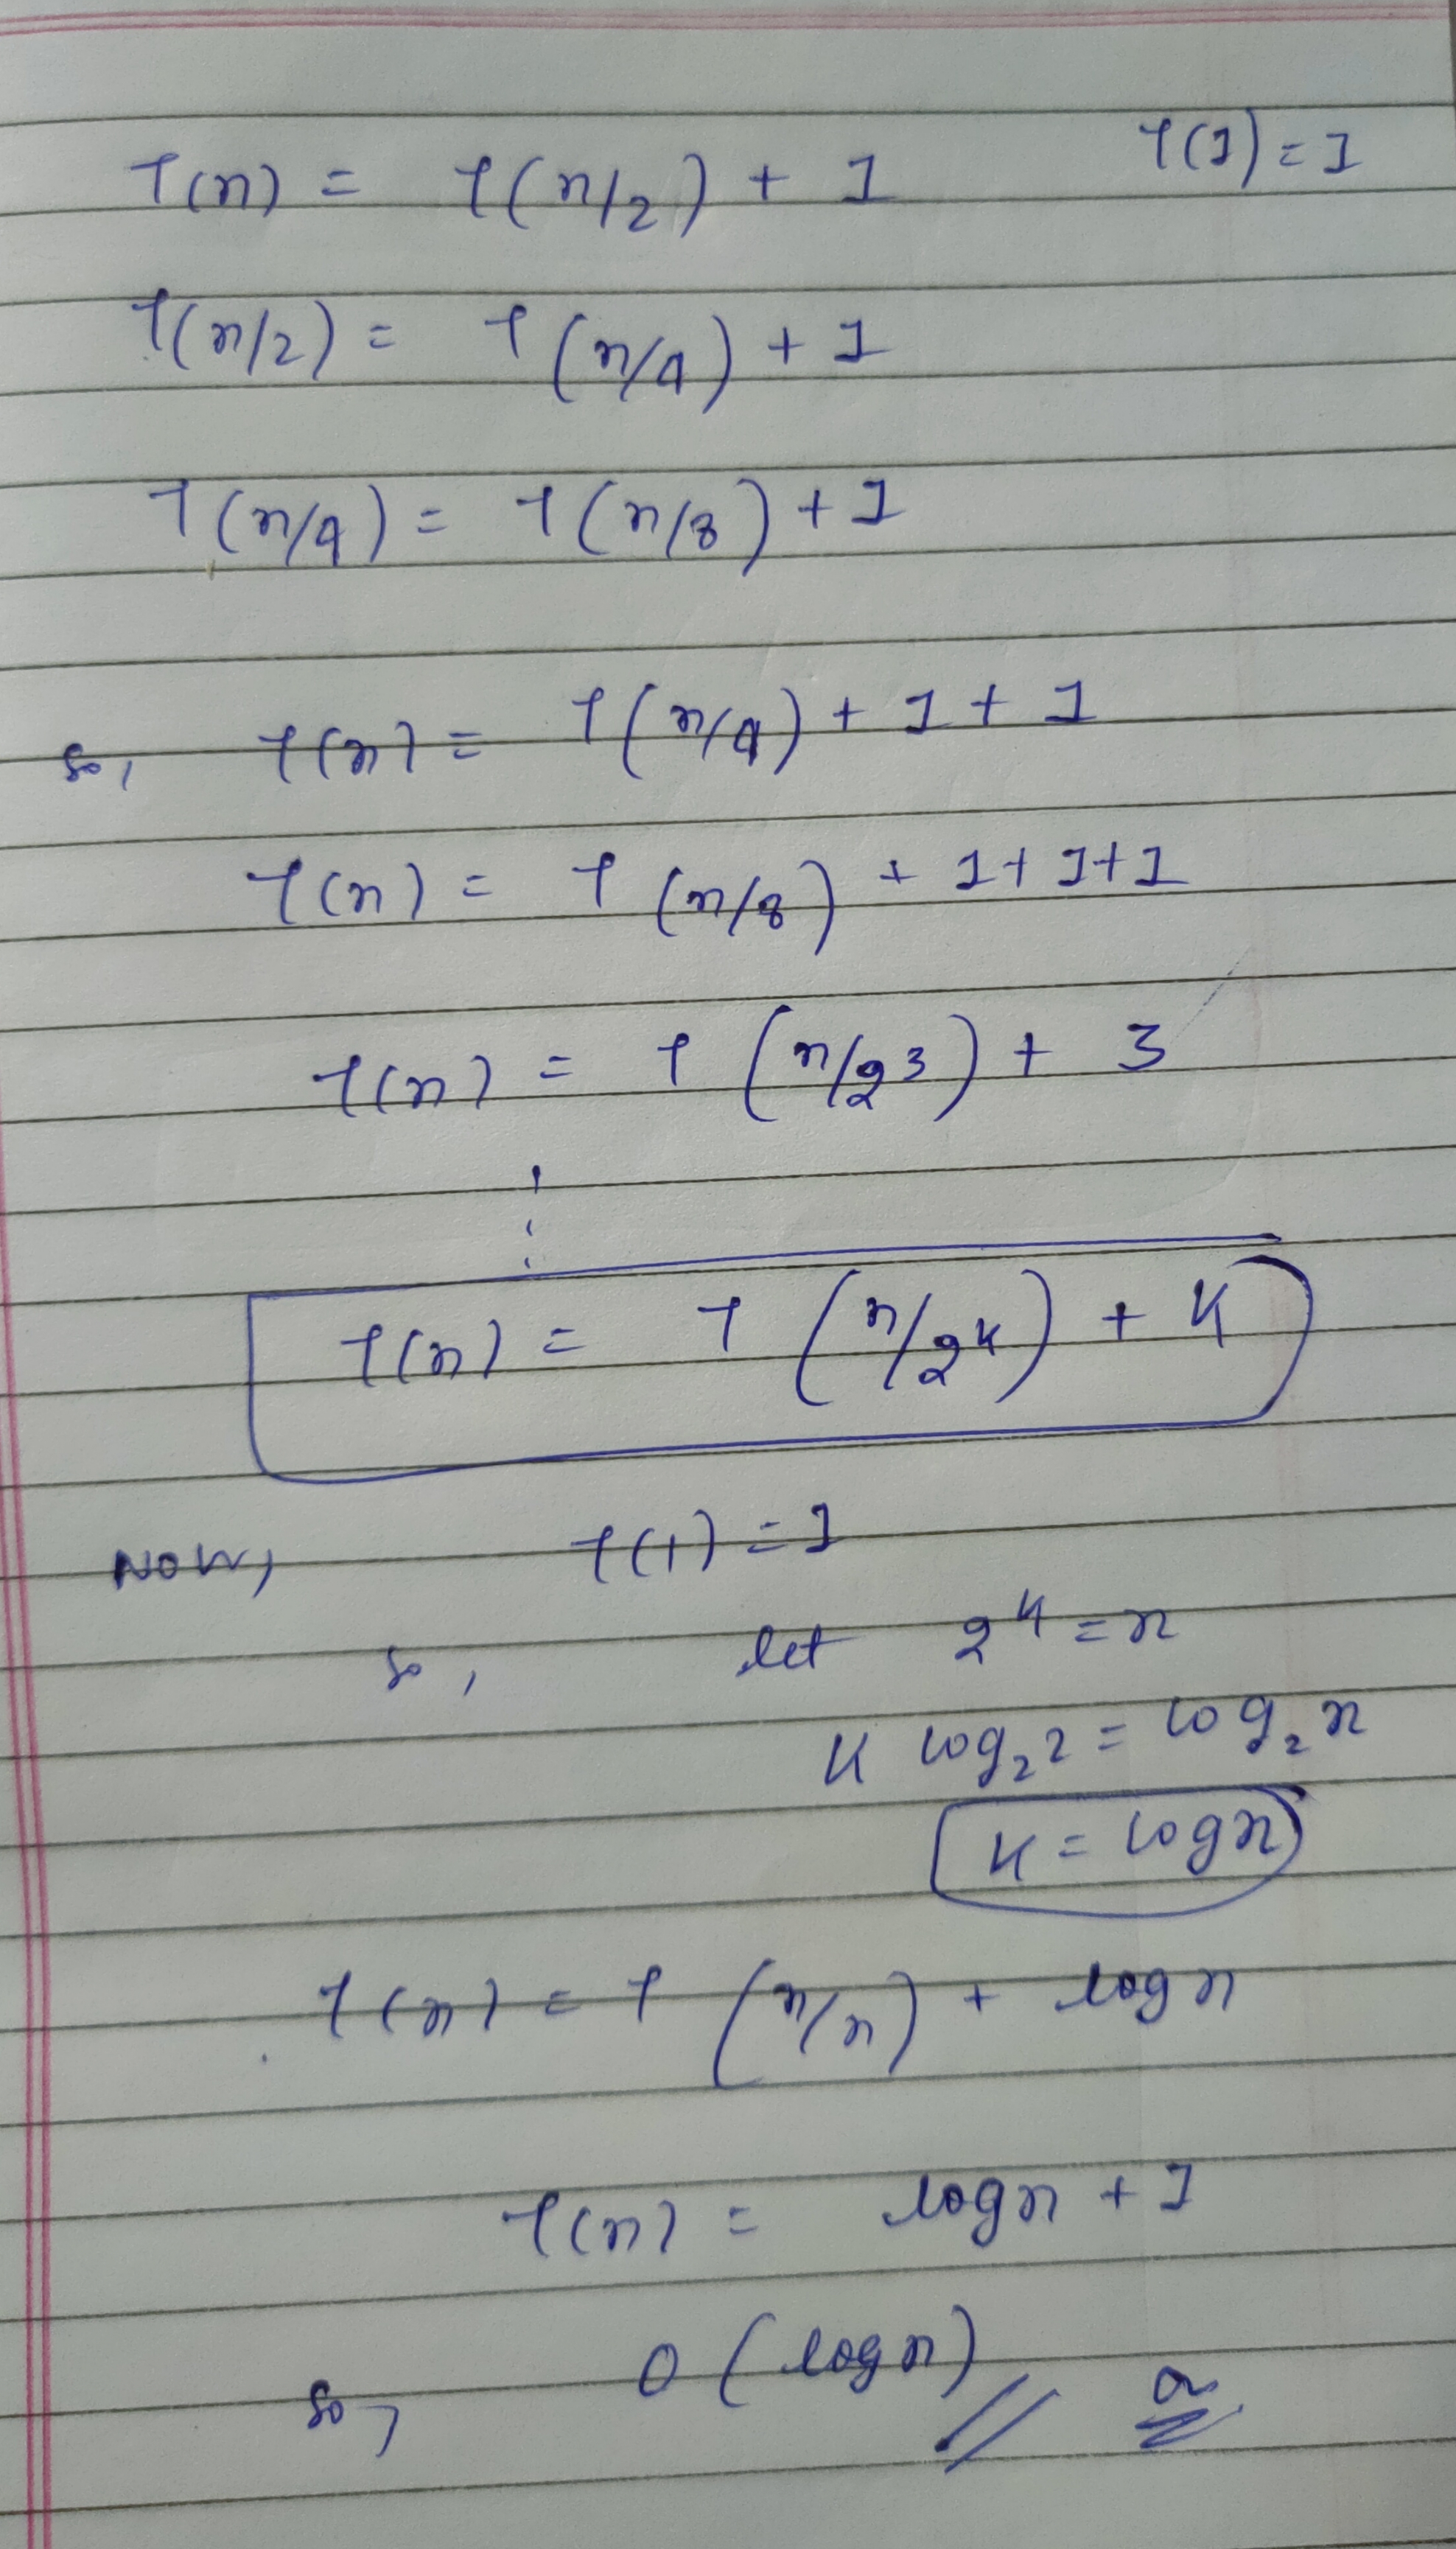 T(n) = T(n/2) + 1 T(1) = 1
T(n/2) = T(n/4) + 1
T(n/4) = T(n/8) + 1
so, T(n) = T(n/4) + 1 + 1
T(n) = T(n/8) + 1+1+1
T(n) = T(n/2³) + 3
T(n) = T(n/2ᵏ) + K
NOW, T(1) = 1
so, let 2ᵏ = n
K log₂2 = log₂n
K = logn
T(n) = T(n/n) + logn
T(n) = logn + 1
so, O(logn)